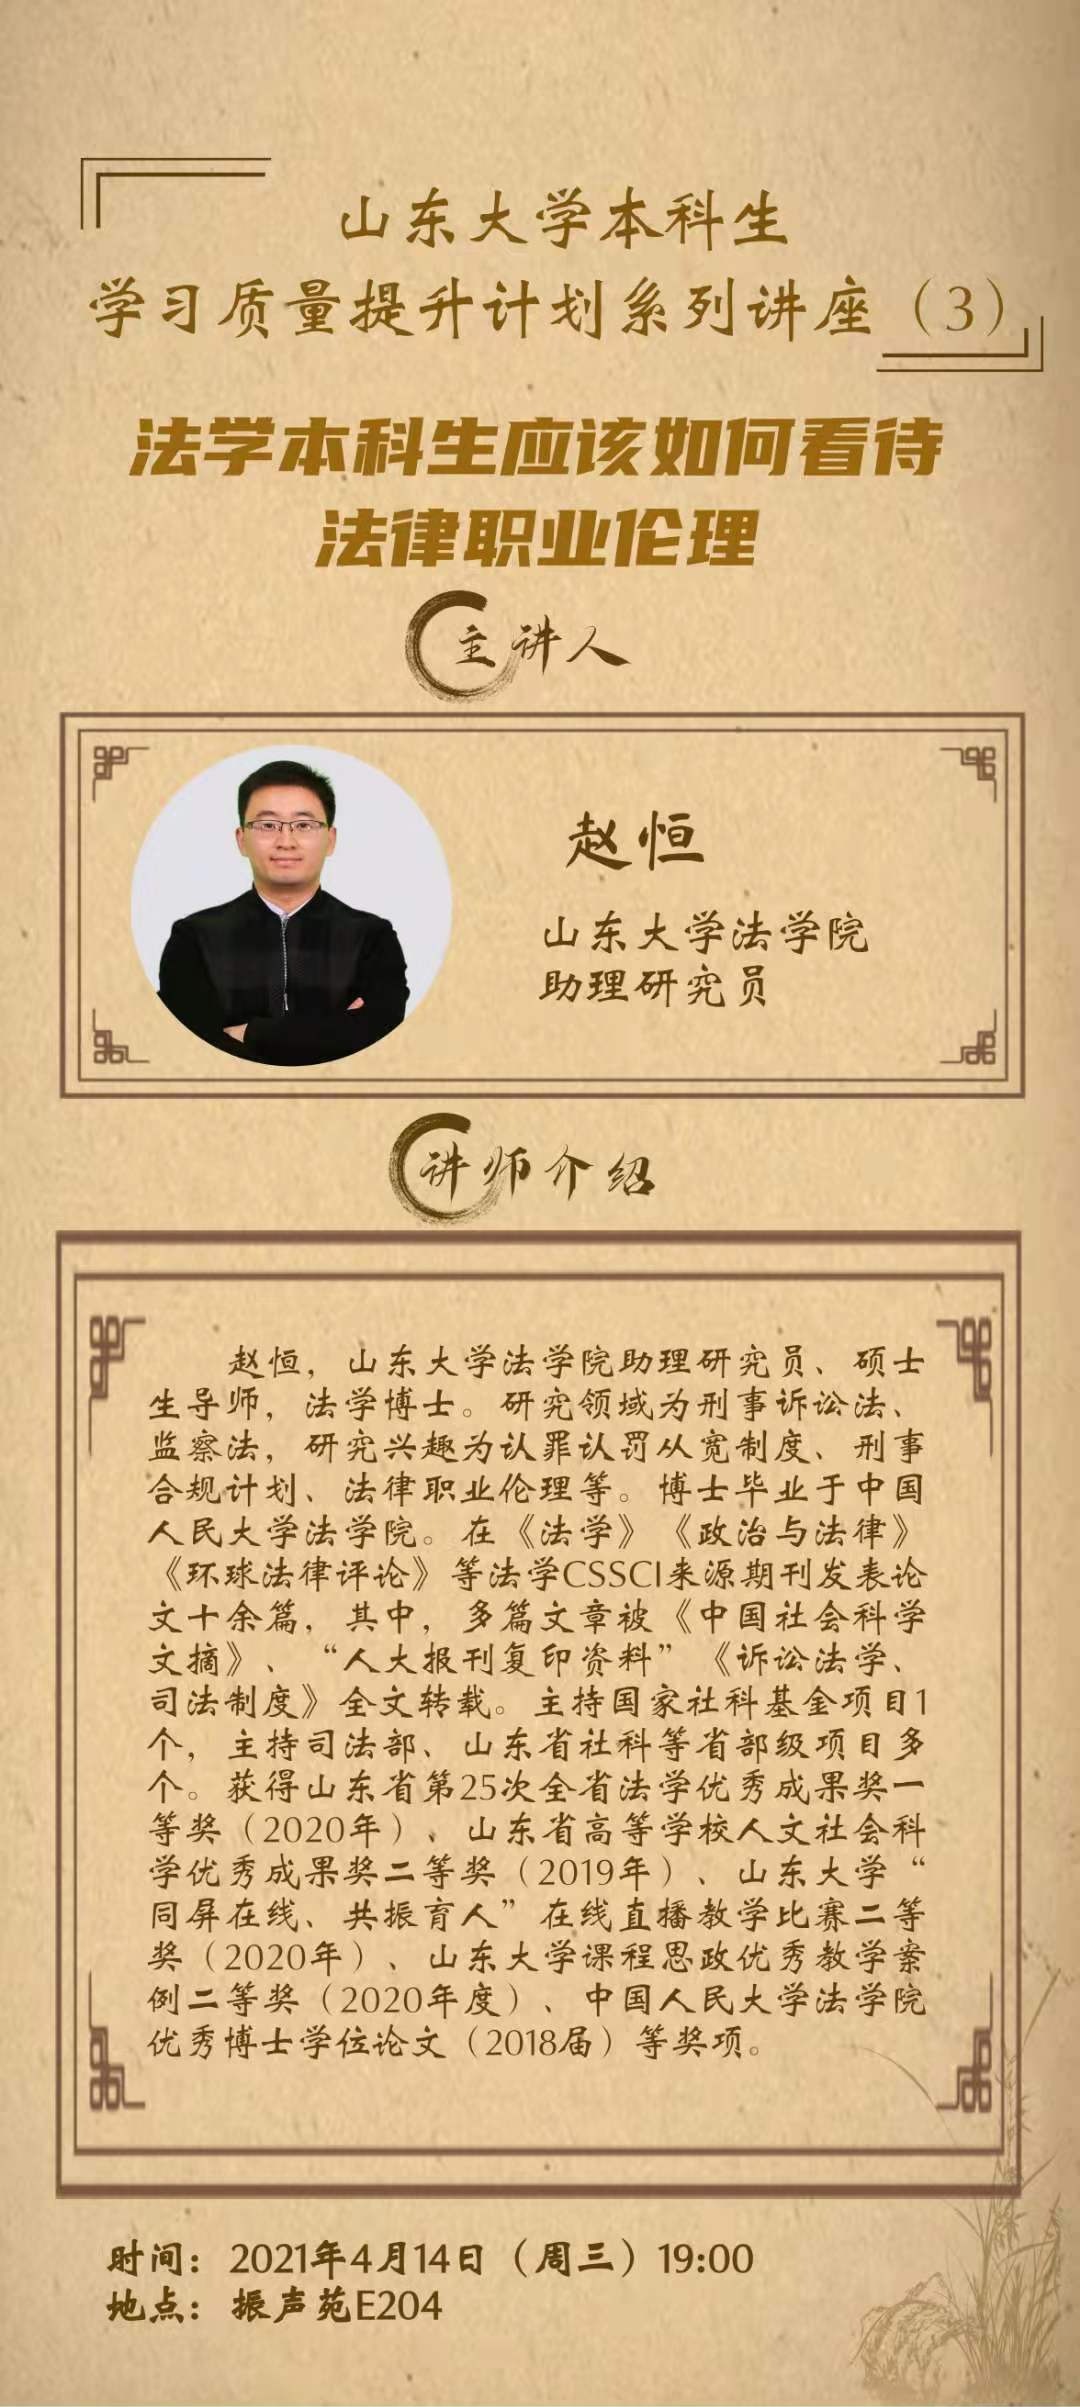 山东大学本科生
学习质量提升计划系列讲座（3）
法学本科生应该如何看待
法律职业伦理
主讲人
赵恒
山东大学法学院
助理研究员
讲师介绍
赵恒，山东大学法学院助理研究员、硕士
生导师，法学博士。研究领域为刑事诉讼法、
监察法，研究兴趣为认罪认罚从宽制度、刑事
合规计划、法律职业伦理等。博士毕业于中国
人民大学法学院。在《法学》《政治与法律》
《环球法律评论》等法学CSSCI来源期刊发表论
文十余篇，其中，多篇文章被《中国社会科学
文摘》、“人大报刊复印资料”《诉讼法学、
司法制度》全文转载。主持国家社科基金项目1
个，主持司法部、山东省社科等省部级项目多
个。获得山东省第25次全省法学优秀成果奖一
等奖（2020年）、山东省高等学校人文社会科
学优秀成果奖二等奖（2019年）、山东大学“
同屏在线、共振育人”在线直播教学比赛二等
奖（2020年）、山东大学课程思政优秀教学案
例二等奖（2020年度）、中国人民大学法学院
优秀博士学位论文（2018届）等奖项。
时间：2021年4月14日（周三）19:00
地点：振声苑E204